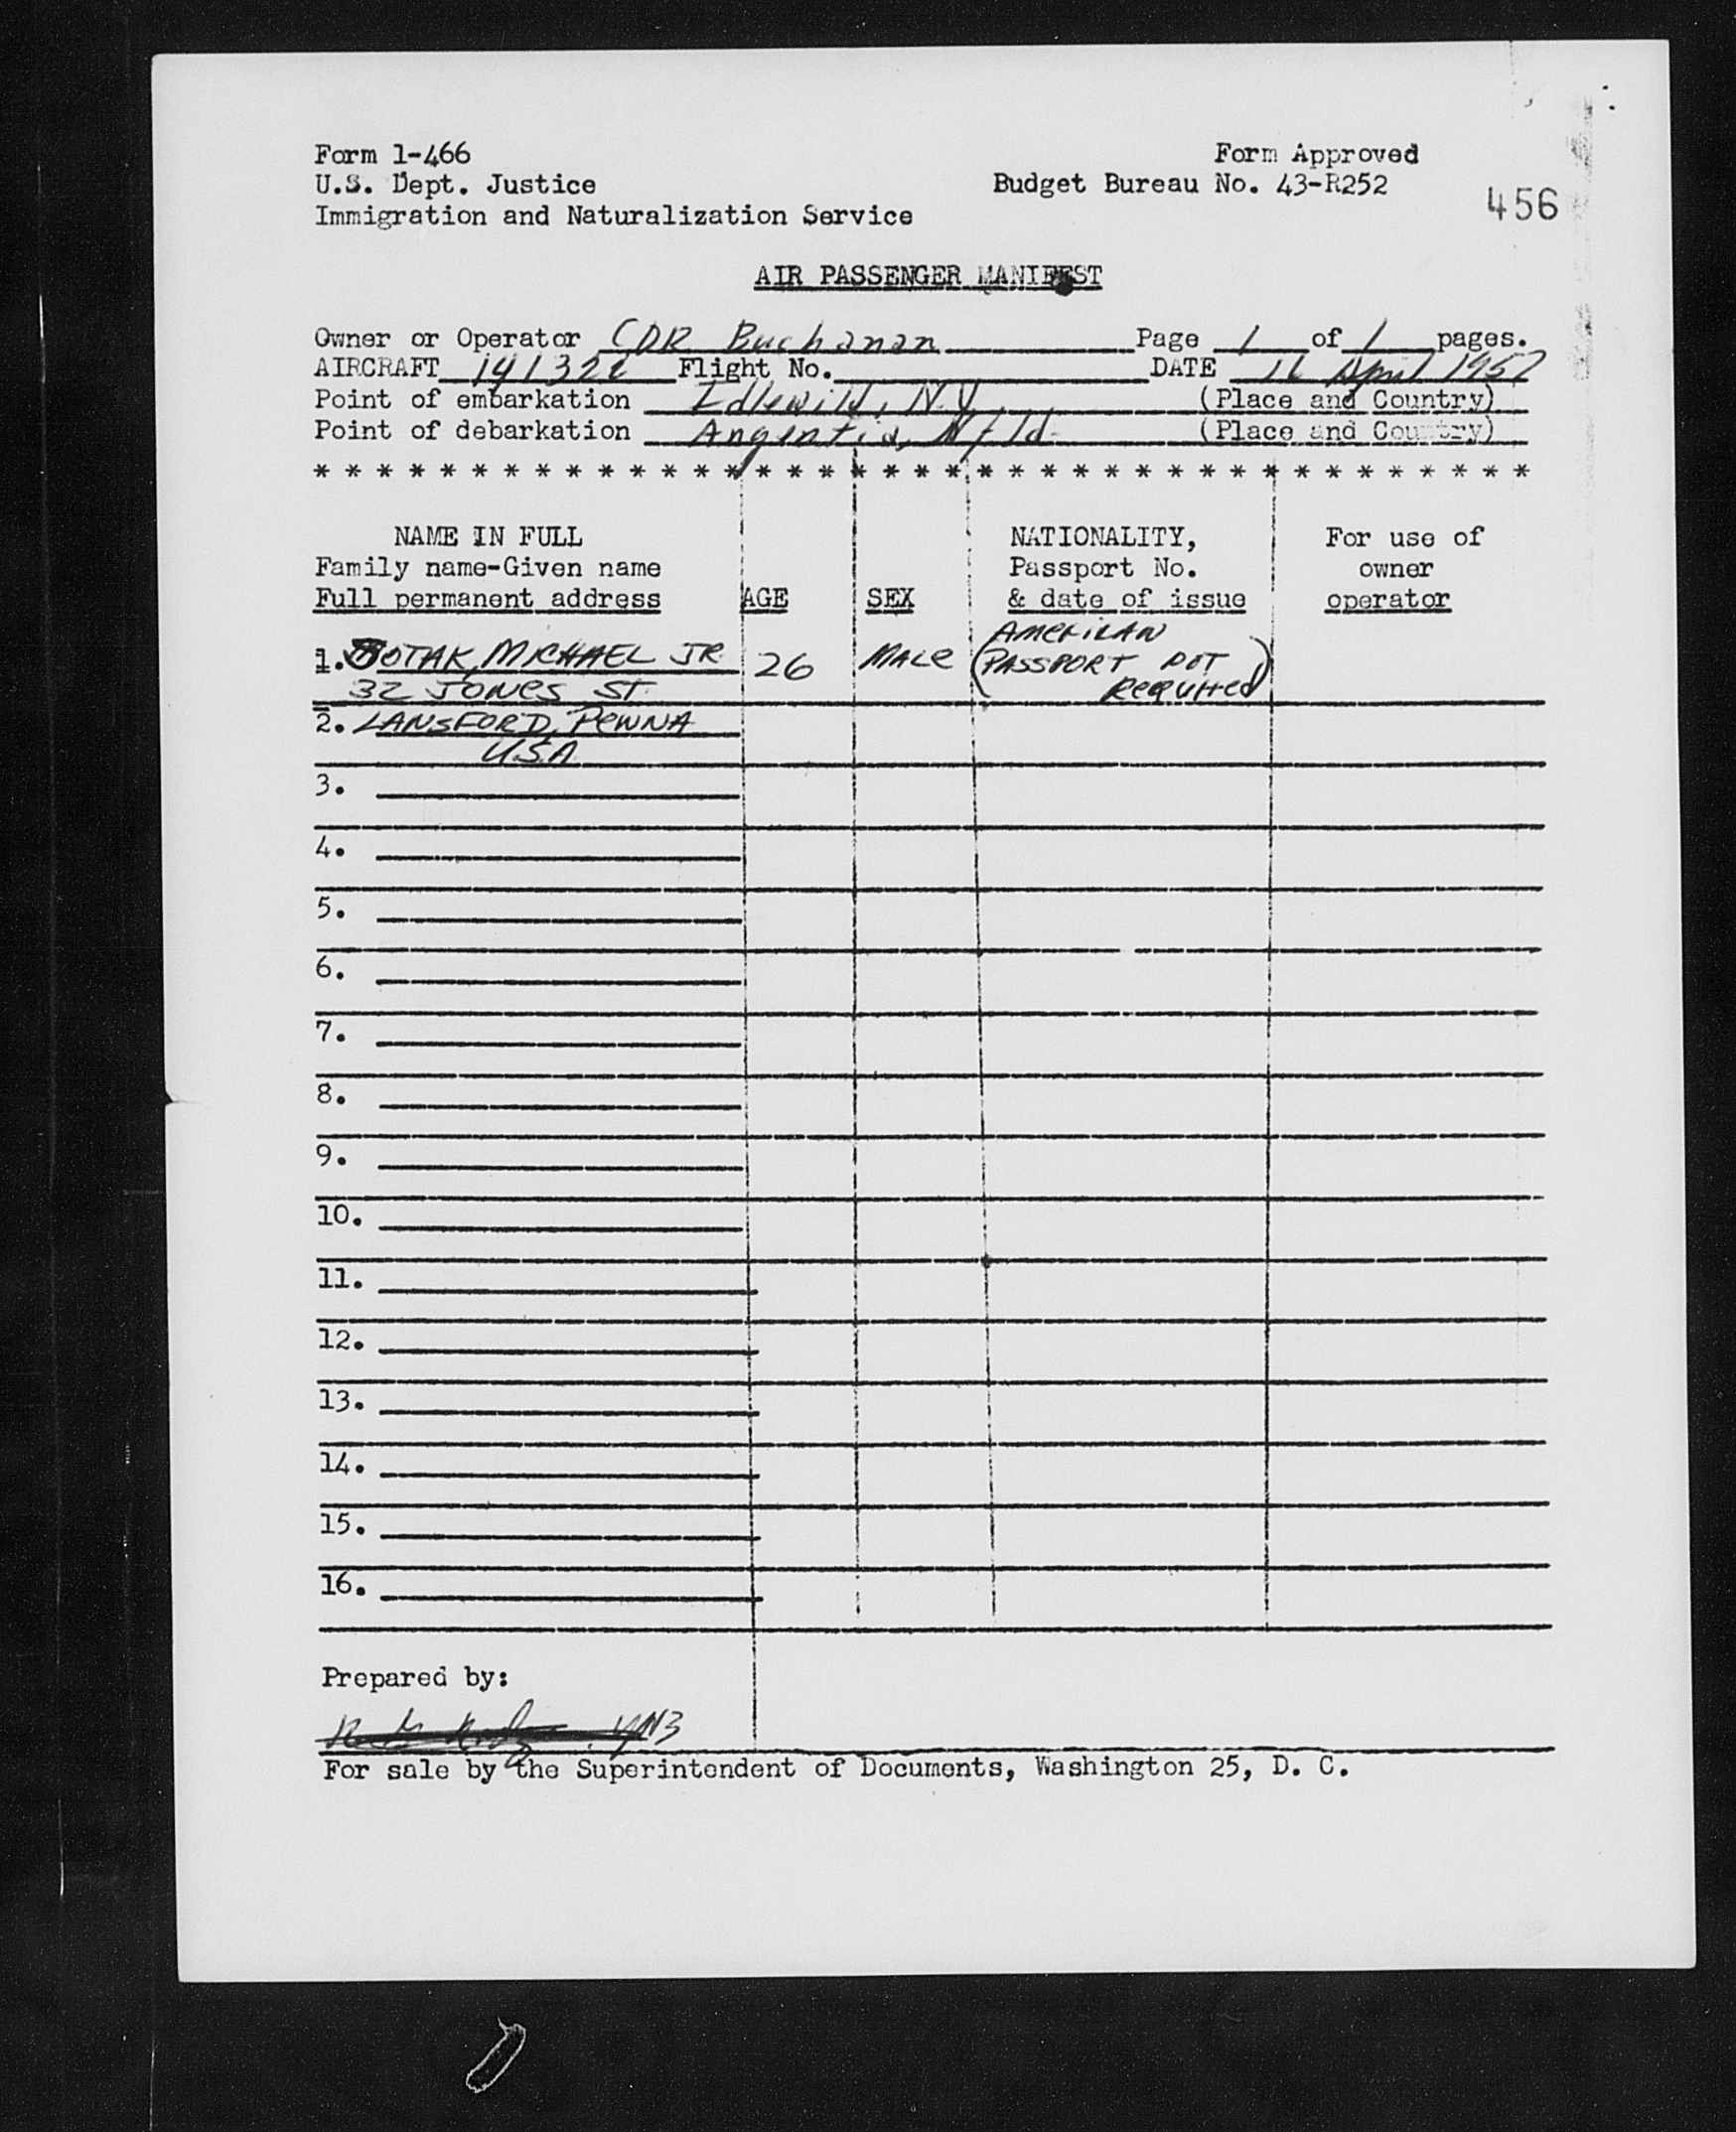 Form 1-466 Form Approved
U.S. Dept. Justice Budget Bureau No. 43-R252
Immigration and Naturalization Service 456
AIR PASSENGER MANIFEST
Owner or Operator CDR Buchanan Page 1 of 1 pages.
AIRCRAFT 141322 Flight No. DATE April 1957
Point of embarkation Idlewild, N.Y. (Place and Country)
Point of debarkation Argentia, Nfld. (Place and Country)
* * * * * * * * * * * * * * * * * * * * * * * * * * * * * * * * * * * * * * *
NAME IN FULL NATIONALITY, For use of
Family name-Given name Passport No. owner
Full permanent address AGE SEX & date of issue operator
AMERICAN
1. MICHAEL JR 26 MALE (PASSPORT NOT
32 JONES ST REQUIRED)
2. LANSFORD, PENNA
USA
3.
4.
5.
6.
7.
8.
9.
10.
11.
12.
13.
14.
15.
16.
Prepared by:
YN3
For sale by the Superintendent of Documents, Washington 25, D. C.